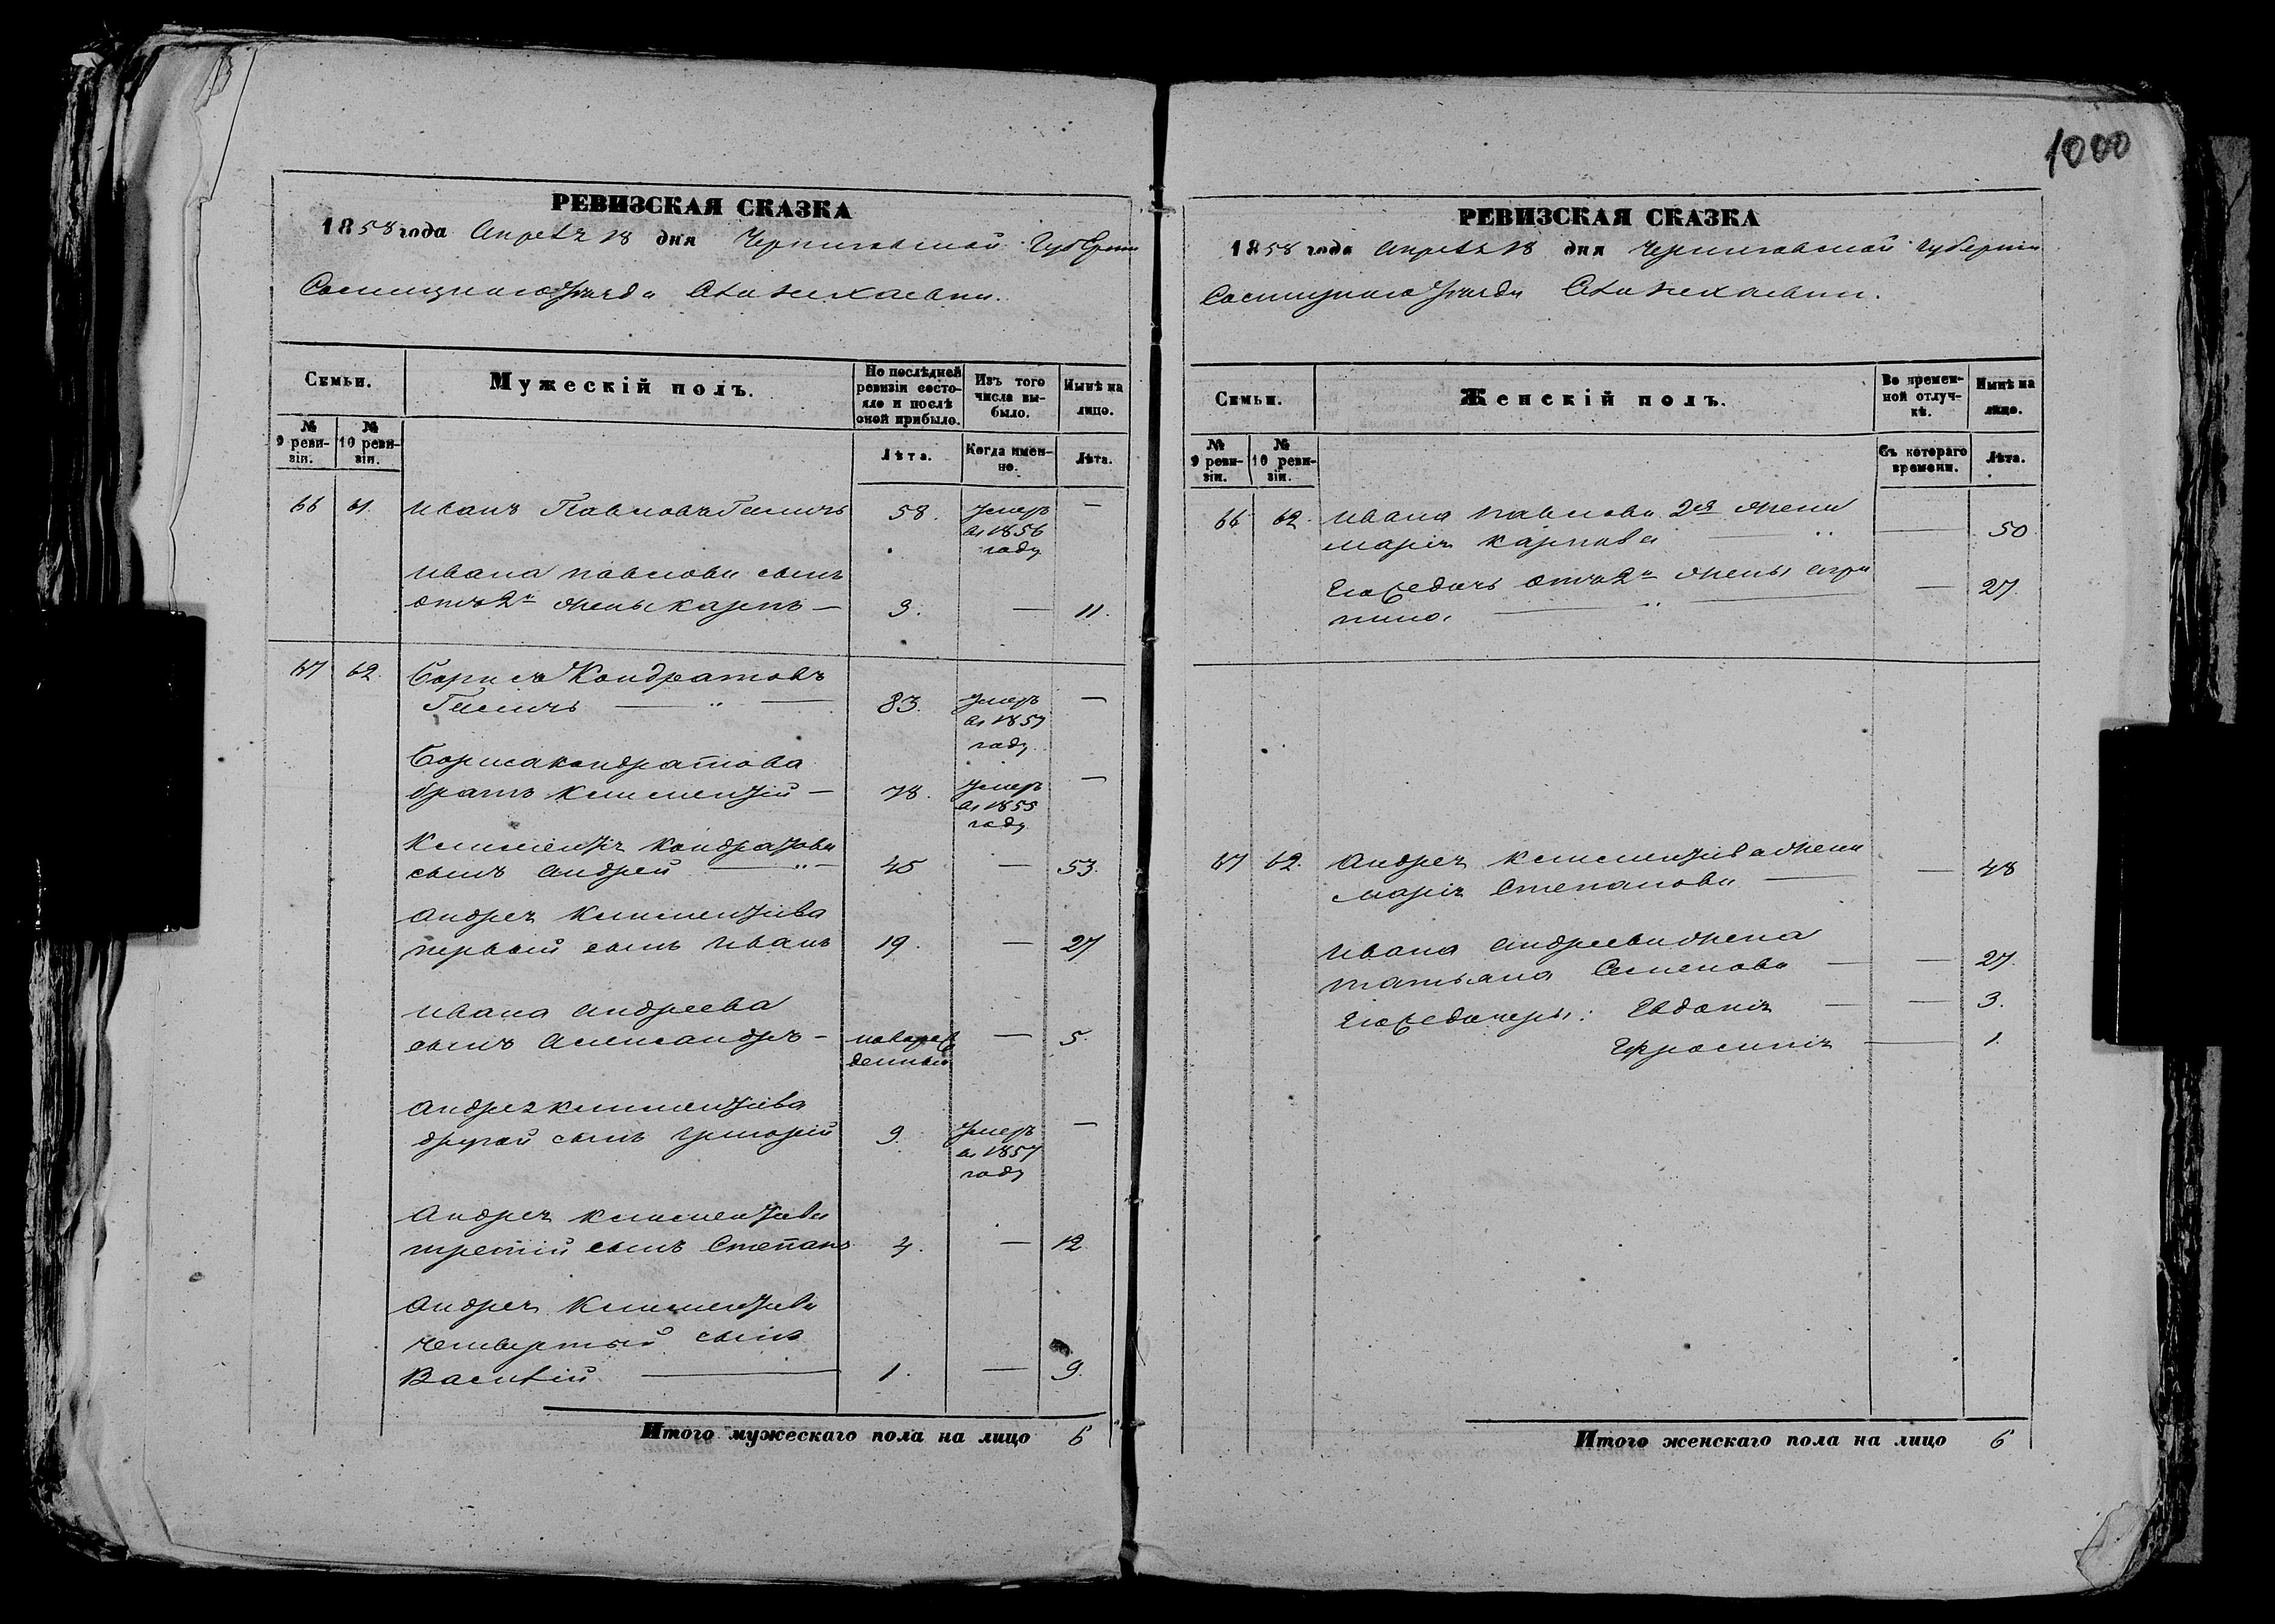 1000
РЕВИЗСКАЯ СКАЗКА
1858 года Апреля 18 дня Черниговской Губерніи
Сосницкаго Уезда
Семьи.
Мужескій полъ.
По послѣдней ревизіи состояло и послѣ оной прибыло.
Изъ того числа выбыло.
Нынѣ на лицо.
№ 9 ревизіи.
№ 10 ревизіи.
Лѣта.
Когда именно.
Лѣта.
66 61. Иванъ Павловъ 58. Умеръ въ 1856 году —
Ивана Павлова сынъ
отъ 2й жены Карпъ — 3. — 11.
67 62. Борисъ Кондратовъ
83. Умеръ въ 1857 году —
Бориса Кондратова
братъ Климентій — 78. Умеръ въ 1855 году —
Климентія Кондратова
сынъ Андрей — 45 — 53.
Андрея Климентіева
первый сынъ Иванъ 19. — 27
Ивана Андреева
сынъ Александръ — новорожденный — 5.
Андрея Климентіева
другой сынъ Григорій 9. Умеръ въ 1857 году —
Андрея Климентіева
третій сынъ Степанъ 4. — 12
Андрея Климентіева
четвертый сынъ
Василій — 1. — 9.
Итого мужескаго пола на лицо 6
РЕВИЗСКАЯ СКАЗКА
1858 года Апреля 18 дня Черниговской Губерніи
Сосницкаго Уезда
Семьи.
Женскій полъ.
Во временной отлучкѣ.
Нынѣ на лицо.
№ 9 ревизіи.
№ 10 ревизіи.
Съ котораго времени.
Лѣта.
66 62. Ивана Павлова 2я жена
Марія Карпова — 50
Его дочь отъ 2й жены Агри
пина — 27.
67 62. Андрея Климентіева жена
Марія Степанова — 48
Ивана Андреева жена
Татьяна Семенова — 27.
Его дочери: Евдокія — 3.
Ефросинія — 1.
Итого женскаго пола на лицо 6